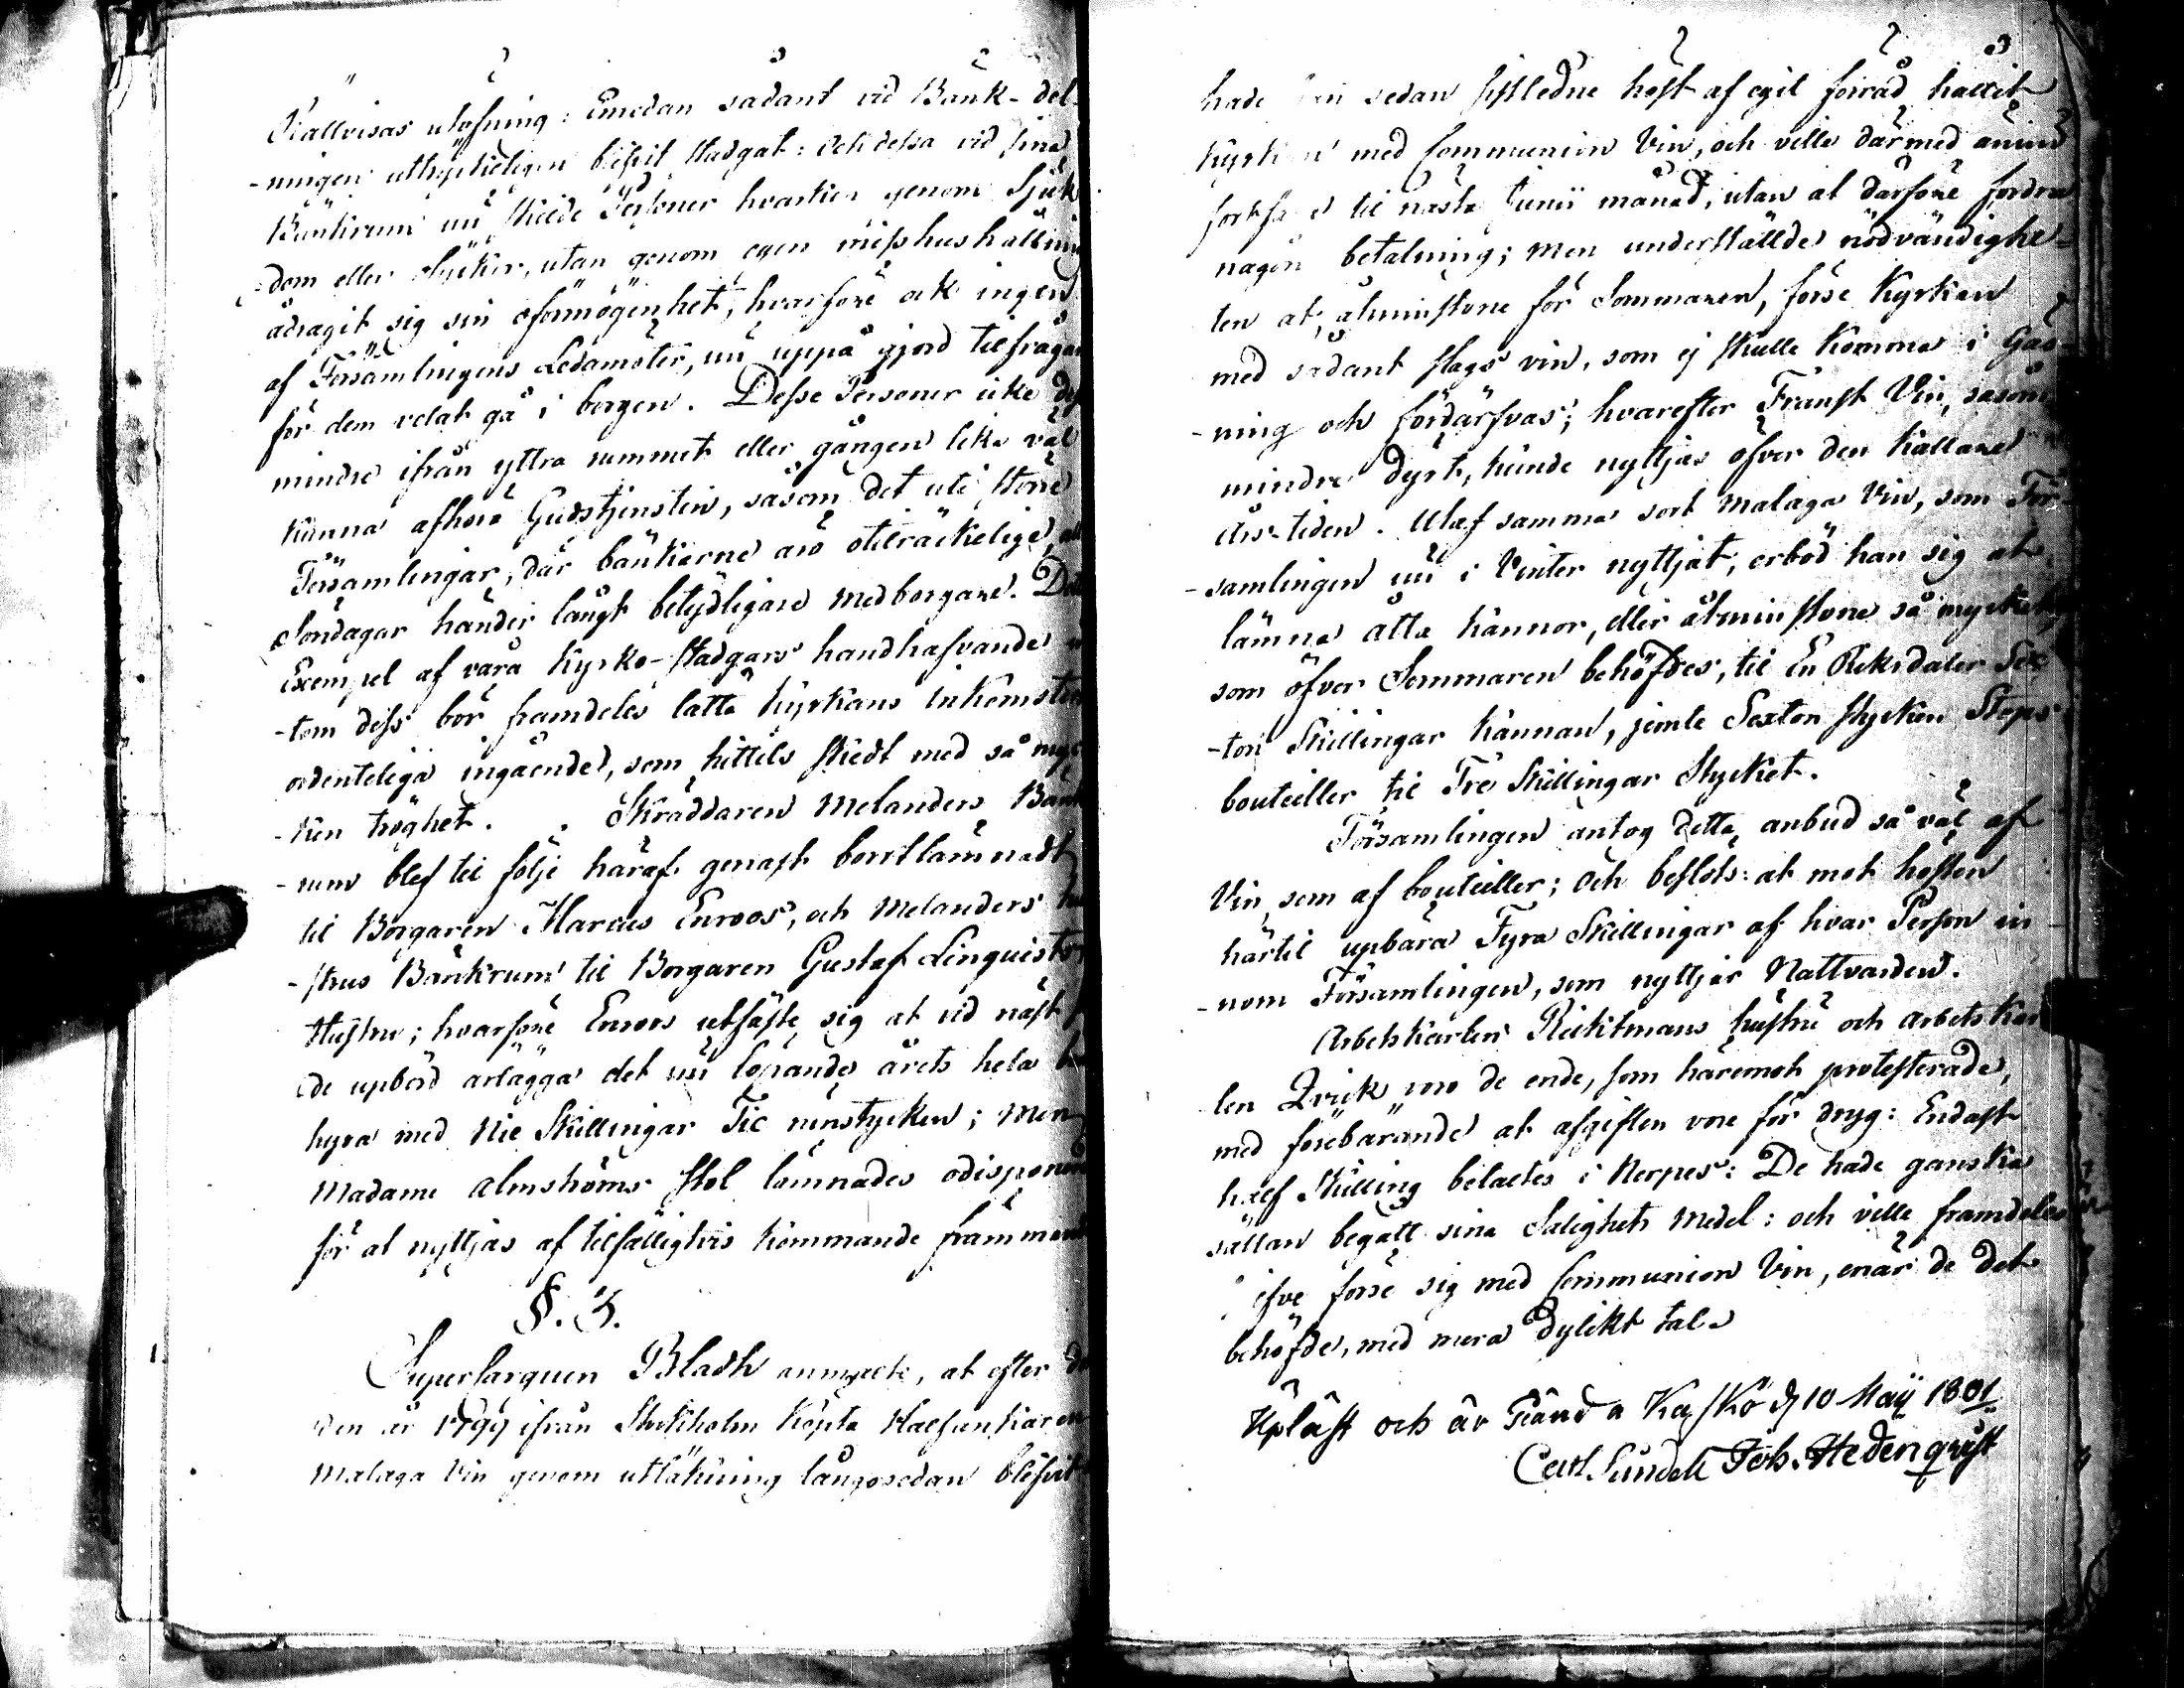 Rättvisas utöfning: Emedan sådant vid Bänk-del-
-ningen uttryckeligen blifvit stadgat: Och dessa vid sina
Bänkrum nu skilde Personer hvarken genom Sjuk
-dom eller olyckor, utan genom egen misshushållning
ådragit sig sin oförmögenhet, hvarföre ock ingen
af Församlingens Ledamöter, nu uppå gjord tilfrågan
för dem velat gå i borgen. Desse Personer icke
mindre ifrån yttra rummet eller gången lika väl
kunna afhöra Gudstjensten, såsom det uti större
Församlingar, där bänkarne äro otilräckelige, alla
Söndagar händer långt betydligare Medborgare.
Exempel af våra Kyrko-stadgars handhafvande
-tom dess bör framdeles lätta kyrkans inkomsters
ordenteliga ingående, som hittils skiedt med så myc
-ken tröghet. Skräddaren Melanders Bänk
-rum blef til följe häraf genast bortlämnadt
til Borgaren Marcus Enroos, och Melanders hu
-strus Bänkrum til Borgaren Gustaf Linquists
Hustru; hvarföre Enroos utfäste sig at vid näst
de upbörd aflägga det nu löpande årets hela
hyra med Nie Skillingar Tie runstycken; Men
Madame Almsholms Stol lämnades odisponerad
för at nyttjas af tilfälligtvis kommande främmande
§. 3.
Supercarguen Bladh anmälte, at efter
den år 1799 ifrån Stockholm köpta Halfankaren
Malaga Vin genom utläckning långesedan blifvit
hade han sedan sistledne höst af egit förråd hållit
kyrkan med Communion Vin, och ville därmed ännu
fortfara til nästa Junii månad, utan at därföre fordra
någon betalning; men underställde nödvändighe-
ten at, åtminstone för Sommaren, förse Kyrkan
med sådant slags vin, som ej skulle komma i Gäs-
-ning och fördärfvas; hvarefter Franskt Vin, såsom
mindre dyrt, kunde nyttjas öfver den kallare
års-tiden. Utaf samma sort Malaga Vin, som För-
-samlingen nu i Vinter nyttjat, erböd han sig at
lämna åtta kannor, eller åtminstone så mycket
som öfver Sommaren behöfdes, til En Riksdaler Sex
-ton Skillingar kannan, jämte Sexton stycken Stops
bouteiller til Tre Skillingar Stycket.
Församlingen antog detta anbud så väl af
Vin, som af bouteiller; Och beslöts: at mot hösten
härtil upbära Fyra Skillingar af hvar Person in
-nom Församlingen, som nyttjar Nattvarden.
Arbetskarlen Ricktmans hustru och Arbetskar
len Qvick voro de ende, som häremot protesterade,
med förebärande at afgiften vore för dryg: Endast
half Skilling beltes i Nerpes: De hade ganska
sällan begått sina Salighets Medel: och ville framdeles
sjelfve förse sig med Communion Vin, enär de det
behöfde, med mera dylikt tal.
Upläst och är Riktigt Kaskö d 10 Maij 1801
Carl Sundell Joh. Hedenqvist